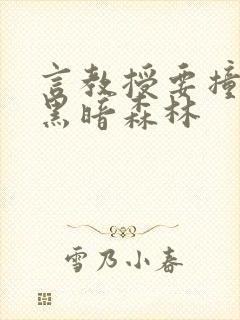 言教授要撞
黑暗森林
雪乃小春